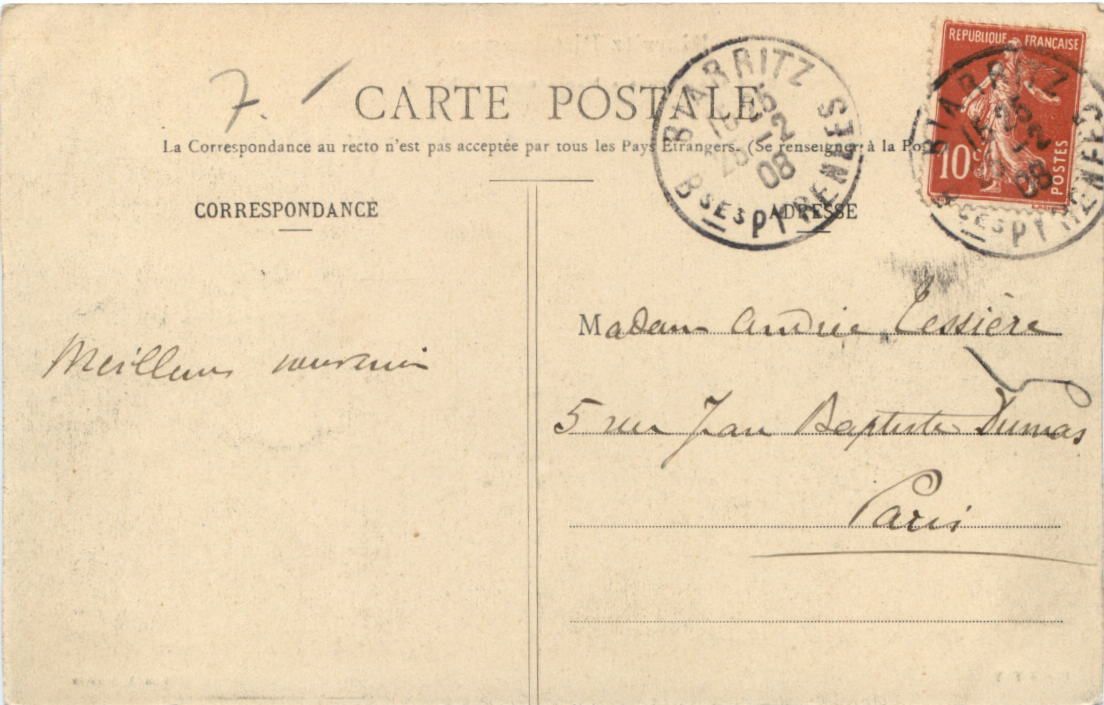 7.
CARTE POSTALE
La Correspondance au recto n'est pas acceptée par tous les Pays Etrangers. (Se renseigner à la Po
BIARRITZ
15 25
28 -2
08
Bses PYRENEES
REPUBLIQUE FRANÇAISE
10 c
POSTES
BIARRITZ
15 25
-2
08
ses PYRENEES
CORRESPONDANCE
ADRESSE
Meilleurs souvenirs
Madame André Tessière
5 rue Jean Baptiste Dumas
Paris